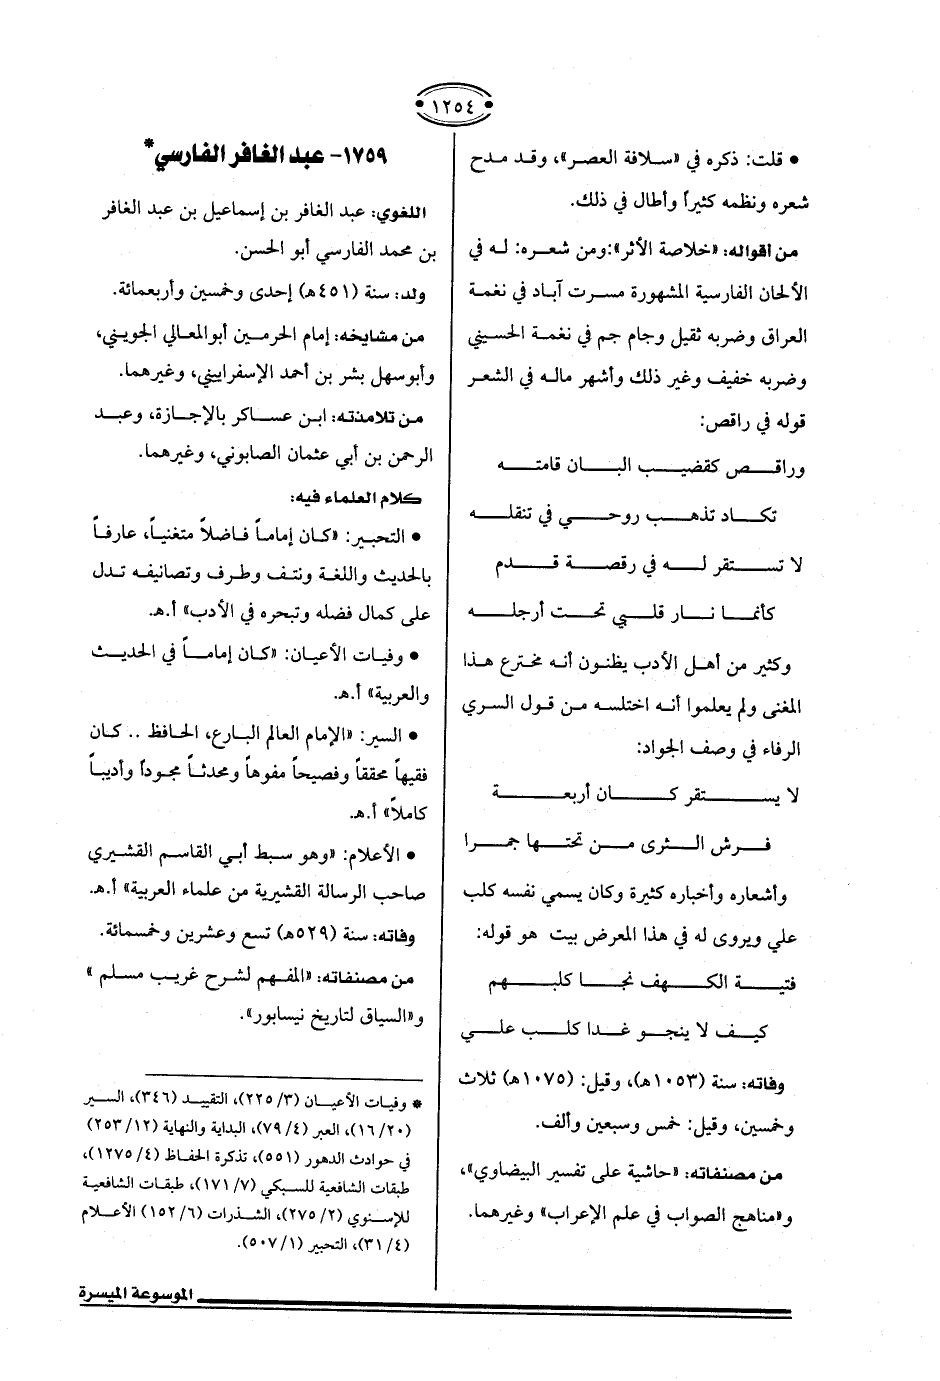 ١٢٥٤
• قلت: ذكره في «سلافة العصر»، وقد مدح
شعره ونظمه كثيراً وأطال في ذلك.
من أقواله: «خلاصة الأثر»:ومن شعره: له في
الألحان الفارسية المشهورة مسرت آباد في نغمة
العراق وضربه ثقيل وجام جم في نغمة الحسيني
وضربه خفيف وغير ذلك وأشهر ماله في الشعر
قوله في راقص:
وراقص كقضيب البان قامته
تكاد تذهب روحي في تنقله
لا تستقر له في رقصة قدم
كأنما نار قلبي تحت أرجله
وكثير من أهل الأدب يظنون أنه مخترع هذا
المغنى ولم يعلموا أنه اختلسه من قول السري
الرفاء في وصف الجواد:
لا يستقر كان أربعة
فرش الثرى من تحتها جمرا
وأشعاره وأخباره كثيرة وكان يسمي نفسه كلب
علي ويروى له في هذا المعرض بيت هو قوله:
فتية الكهف نجا كلبهم
كيف لا ينجو غدا كلب علي
وفاته: سنة (١٠٥٣هـ)، وقيل: (١٠٧٥هـ) ثلاث
وخمسين، وقيل: خمس وسبعين وألف.
من مصنفاته: «حاشية على تفسير البيضاوي»،
و«مناهج الصواب في علم الإعراب» وغيرهما.
١٧٥٩- عبد الغافر الفارسي*
اللغوي: عبد الغافر بن إسماعيل بن عبد الغافر
بن محمد الفارسي أبو الحسن.
ولد: سنة (٤٥١هـ) إحدى وخمسين وأربعمائة.
من مشايخه: إمام الحرمين أبوالمعالي الجويني،
وأبوسهل بشر بن أحمد الإسفراييني، وغيرهما.
من تلامذته: ابن عساكر بالإجازة، وعبد
الرحمن بن أبي عثمان الصابوني، وغيرهما.
كلام العلماء فيه:
• التحبير: «كان إماماً فاضلاً متغنياً، عارفاً
بالحديث واللغة ونتف وطرف وتصانيفه تدل
على كمال فضله وتبحره في الأدب» أ.هـ.
• وفيات الأعيان: «كان إماماً في الحديث
والعربية» أ.هـ.
• السير: «الإمام العالم البارع، الحافظ .. كان
فقيهاً محققاً وفصيحاً مفوهاً ومحدثاً مجوداً وأديباً
كاملاً» أ.هـ.
• الأعلام: «وهو سبط أبي القاسم القشيري
صاحب الرسالة القشيرية من علماء العربية» أ.هـ.
وفاته: سنة (٥٢٩هـ) تسع وعشرين وخمسمائة.
من مصنفاته: «المفهم لشرح غريب مسلم »
و«السياق لتاريخ نيسابور».
* وفيات الأعيان (٣/ ٢٢٥)، التقييد (٣٤٦)، السير
(٢٠/ ١٦)، العبر (٤/ ٧٩)، البداية والنهاية (١٢/ ٢٥٣)
في حوادث الدهور (٥٥١)، تذكرة الحفاظ (٤/ ١٢٧٥)،
طبقات الشافعية للسبكي (٧/ ١٧١)، طبقات الشافعية
للإسنوي (٢/ ٢٧٥)، الشذرات (٦/ ١٥٢) الأعلام
(٤/ ٣١)، التحبير (١/ ٥٠٧).
الموسوعة الميسرة